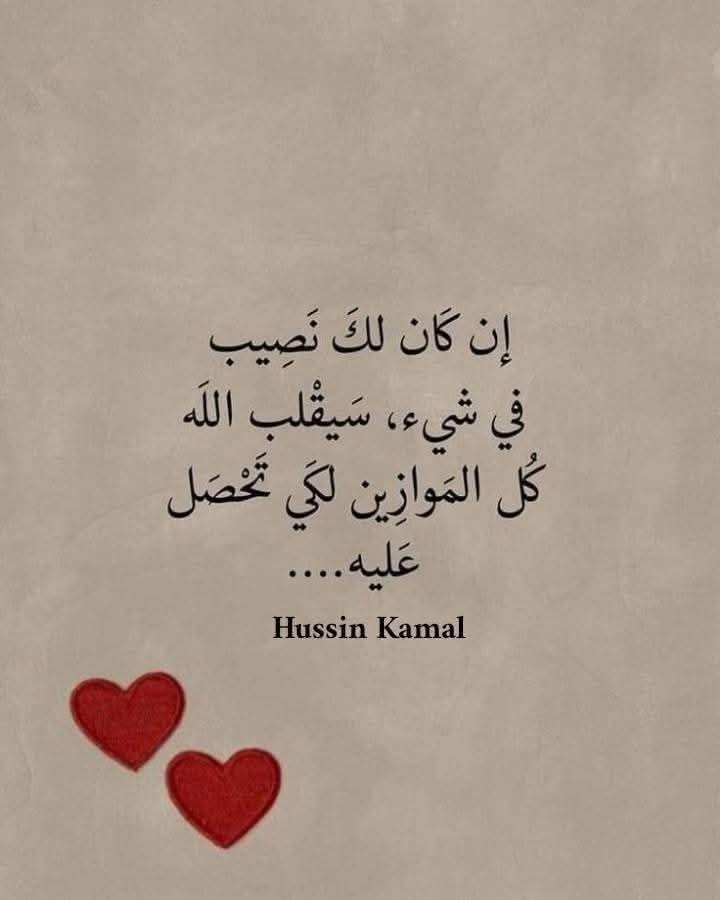 إن كَان لكَ نَصِيب
في شيء، سَيقْلب اللَه
كُل المَوازِين لكَي تَحْصَل
عَليه....
Hussin Kamal